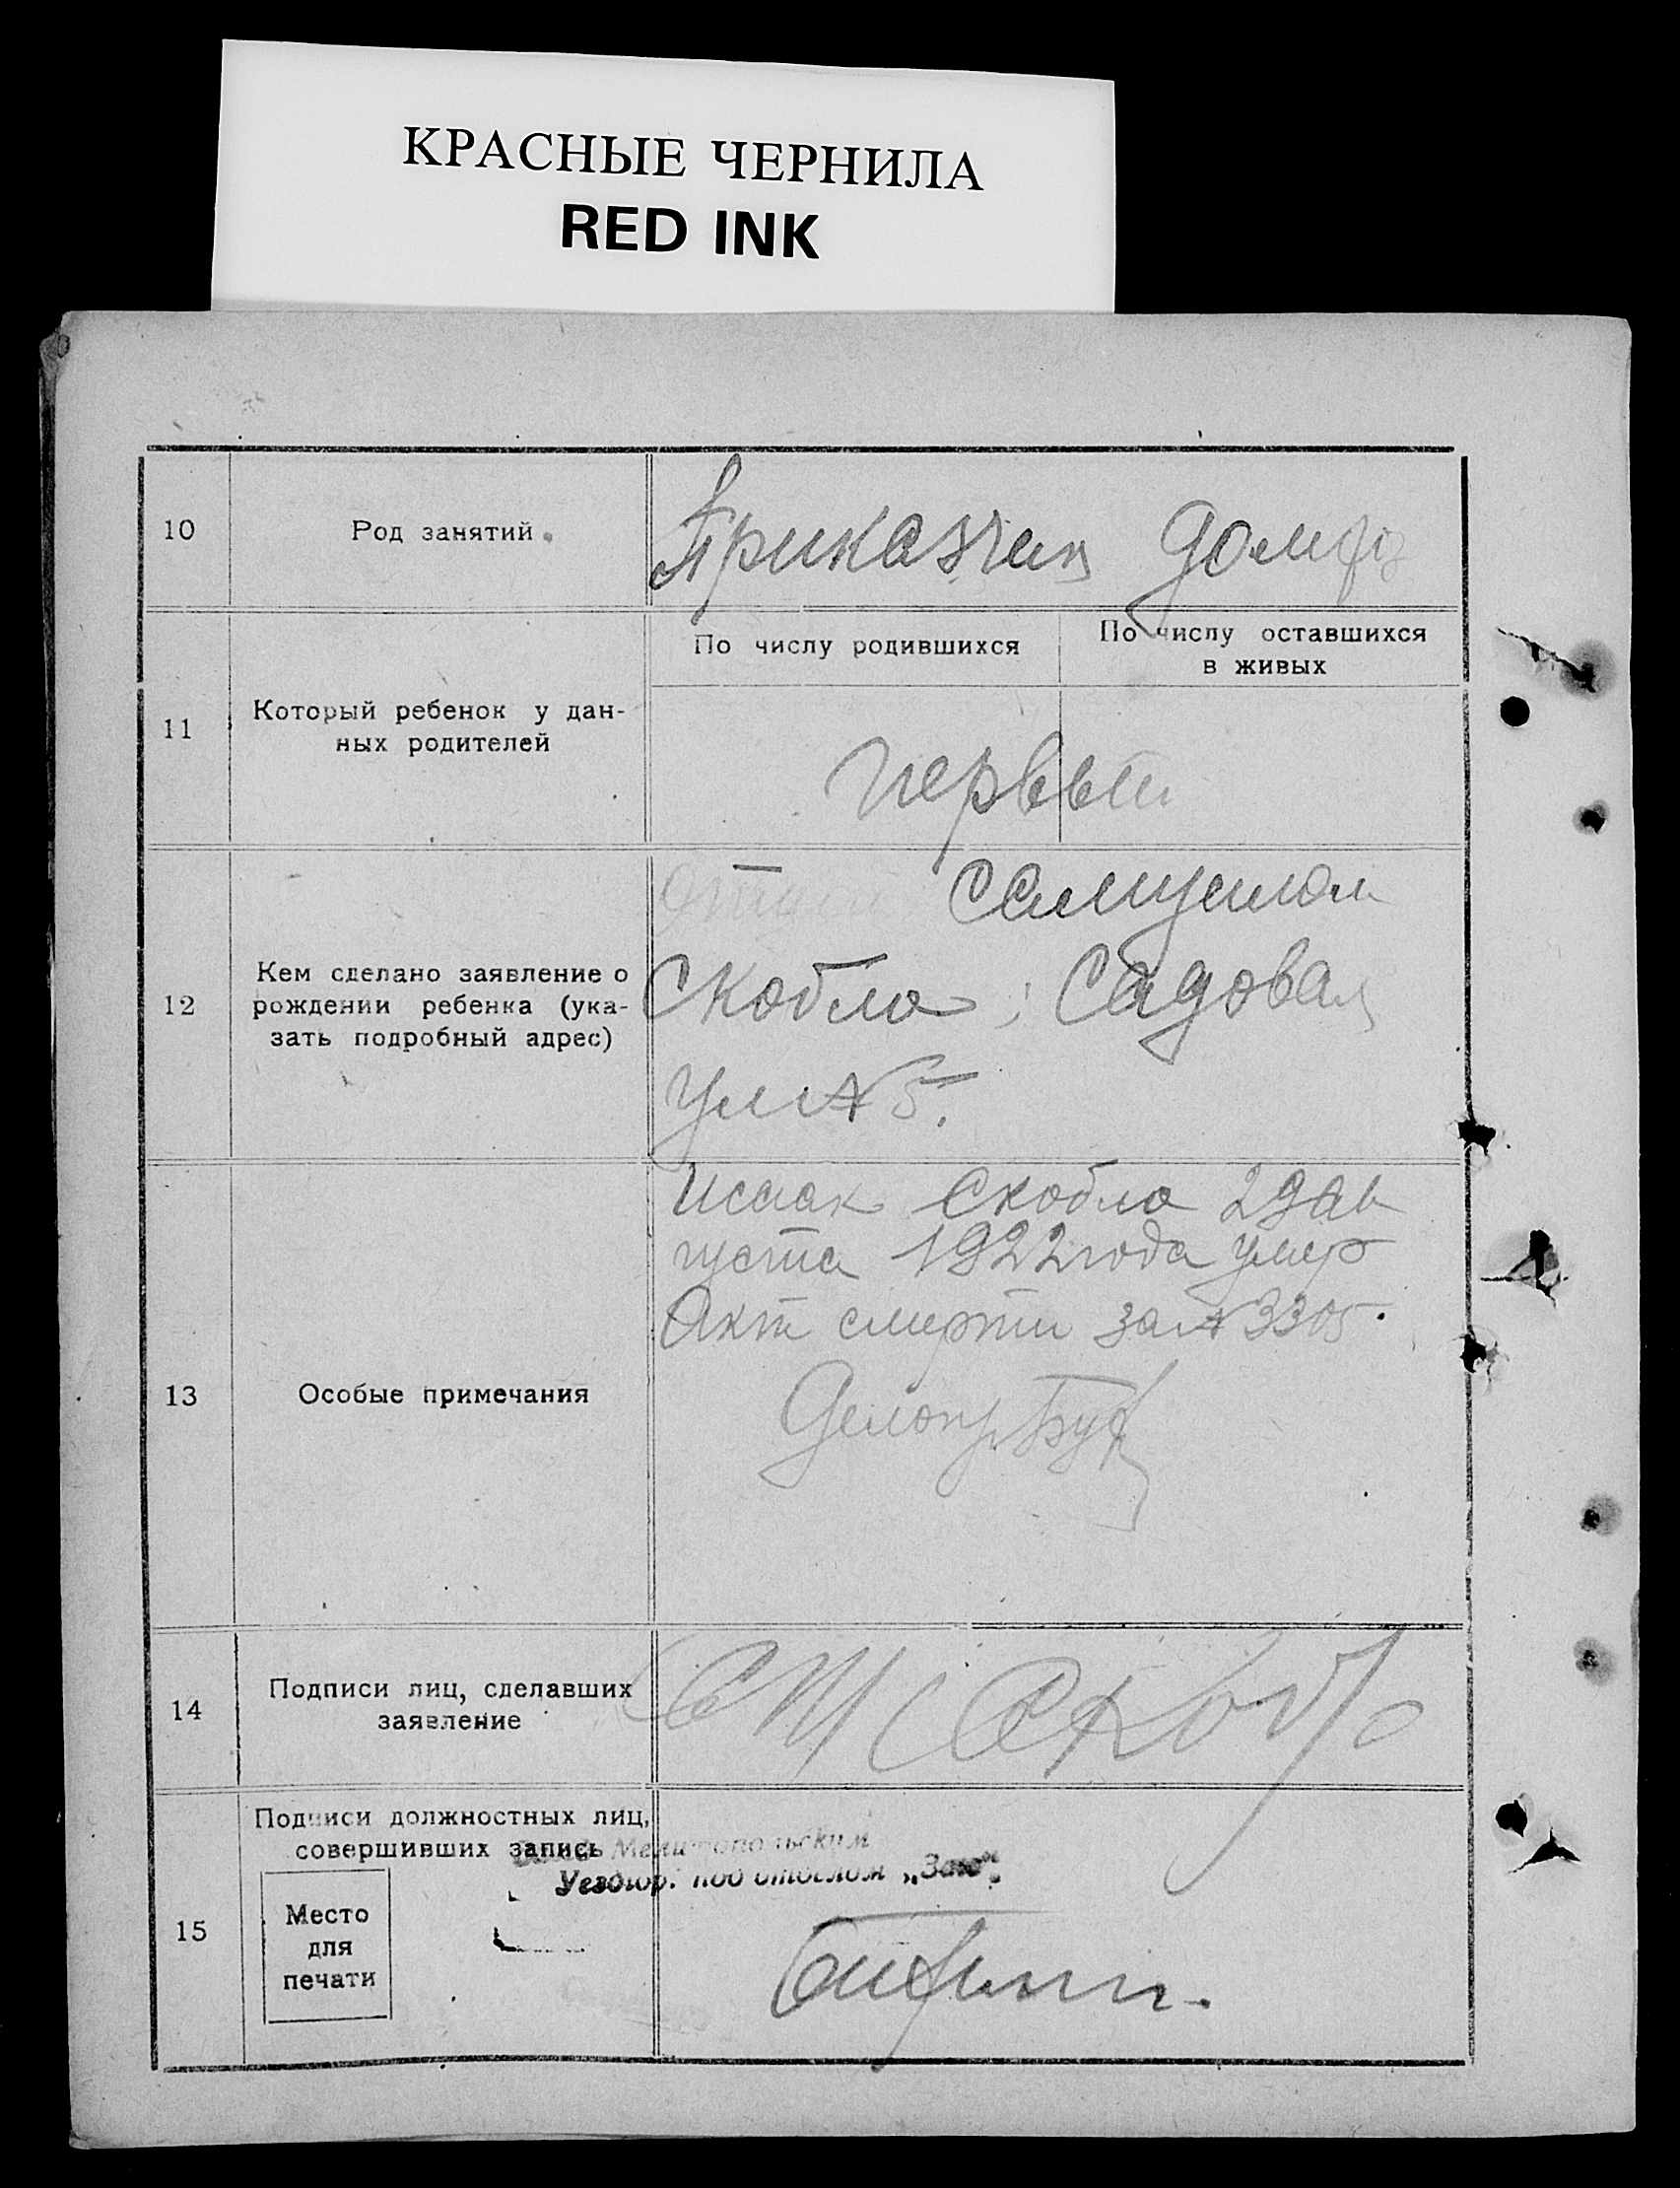 КРАСНЫЕ ЧЕРНИЛА
RED INK
10
Род занятий
Приказчик
11
Который ребенок у дан-
ных родителей
По числу родившихся
По числу оставшихся
в живых
первый
12
Кем сделано заявление о
рождении ребенка (ука-
зать подробный адрес)
Отцом Самуилом
Скобло; Садовая
ул № 5.
13
Особые примечания
Исаак Скобло 29 ав
густа 1922 года умер
Акт смерти за № 3305.
Делопр.
14
Подписи лиц, сделавших
заявление
Скобло
15
Подписи должностных лиц,
совершивших запись
Мелитопольским
под отделом „Загс“.
Место
для
печати